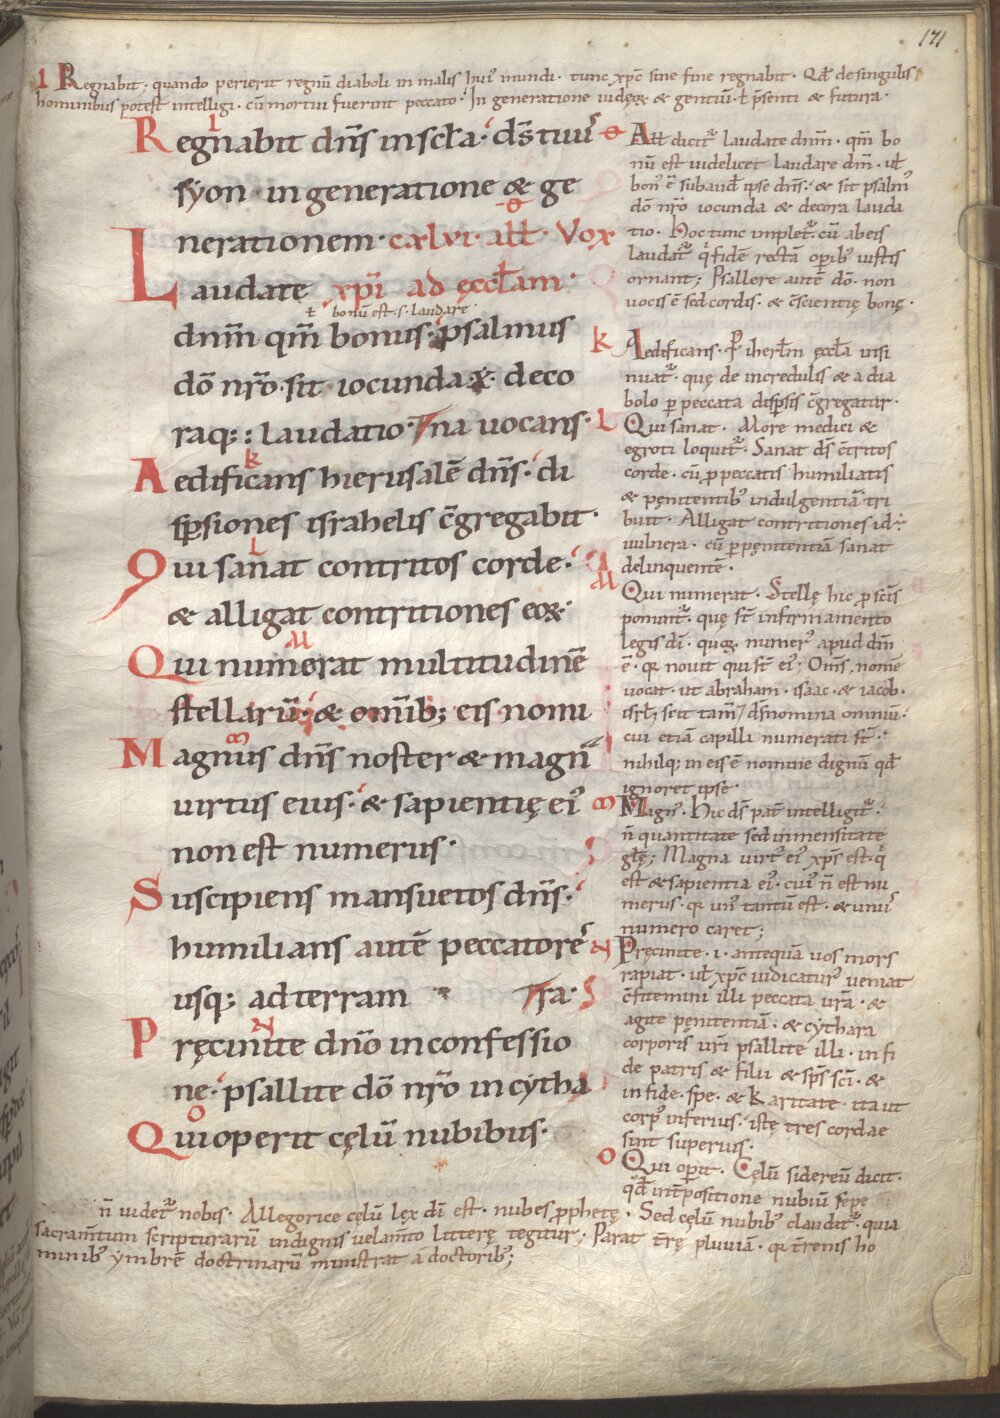 171
I Regnabit· quando perierit regnū diaboli in malis huiꝰ mundi· tunc xp̄c sine fine regnabit· Qđ de singulis
hominibus potest intelligi· cū mortui fuerint peccato· In generatione iudęoꝝ & gentiū· ł p̄senti & futura·
Regnabit dn̄s in sc̄ła· ds̄ tuus
syon· in generatione & ge
nerationem· cxlvi· allł· Vox
Laudate xp̄i ad ęccłam·
ł bonū est·s·laudare
dn̄m qm̄ bonus· psalmus
dō nr̄o· sit iocunda·&· deco
raq; laudatio·
Aedificans hierusalē dn̄s· di
sꝑsiones israhelis c̄gregabit·
Qui sanat contritos corde·
& alligat contritiones eoꝝ·
Qui numerat multitudinē
stellarū· & omīb; eis nomi
Magnus dn̄s noster & magn̄
virtus eius· & sapientię eiꝰ
non est numerus·
Suscipiens mansuetos dn̄s·
humilians autē peccatores
usq; ad terram
Pręcinite dn̄o in confessio
ne· psallite dō nr̄o in cytha
Qui operit cęlū nubibus·
na uocans·
ra·
e Allł dicit᷑ laudate dnm̄· qm̄ bo
nū est uidelicet laudare dm̄· uł
bonꝰ ē subaud̄ ipse dn̄s· & sit psalmꝰ
dō nr̄o iocunda & decora lauda
tio· Hoc tunc implet᷑· cū ab eis
laudat᷑ qui fidē rectā oꝑibꝰ iustis
ornant; Psallere autē dō· non
uocis ē sed cordis· & c̄scientię bonę·
k Aedificans· ꝑ iherłm ęccła insi
nuat᷑· quę de incredulis & a dia
bolo ꝑ peccata disꝑsis c̄gregatur·
L Qui sanat· More medici &
egroti loquit᷑· Sanat ds̄ c̄tritos
corde· cū ꝑ peccatis humiliatis
& pęnitentibꝰ indulgentiā tri
buit· Alligat contritiones id÷
uulnera· cū ꝑ pęnitentiā sanat
delinquentē·
M Qui numerat· Stellę hic ꝓ sc̄is
ponunt᷑· quę st̄ in firmamento
legis dī· quoꝝ· numerꝰ apud dm̄
ē· qr nouit qui st̄ eiꝰ; Omīs· nomē
uocat· ut abraham· isaac· & iacob·
isrł; scit tam̄ ds̄ nomina omniū·
cui etiā capilli numerati st̄·
nihilq; in eis ē nomine dignū qđ
ignoret ipse·
m Magnꝰ· Hic ds̄ pat̄ intelligit᷑·
n̄ quantitate sed inmensitate
glę; Magna uirtꝰ eiꝰ xp̄s est· q̇
est & sapientia eiꝰ· cuiꝰ n̄ est nu
merus· qr unꝰ tantū est· & unuꝰ
numero caret;
N Pręcinite·i· antequā uos mors
rapiat· uł xp̄c iudicaturꝰ ueniat
c̄fitemini illi peccata ur̄a· &
agite pęnitentiā· & cythara
corporis ur̄i psallite illi· in fi
de patris & filii & sp̄s sc̄i· &
in fide· spe· & karitate· ita ut
corpꝰ inferius· istę tres cordae
sint superius·
O Qui oꝑit· Cęlū sidereū dicit·
qđ int̄positione nubiū sepe
n̄ uidet᷑ nobis· Allegorice cęlū lęx dī est· nubes ꝓphetę· Sed cęlū nubibꝰ claudit᷑· quia
sacram̄tum scripturarū indignis uelam̄to litterę tegitur· Parat t̄rę pluuiā· qr t̄renis ho
minibꝰ ymbrē doctrinarū ministrat a doctoribꝰ;